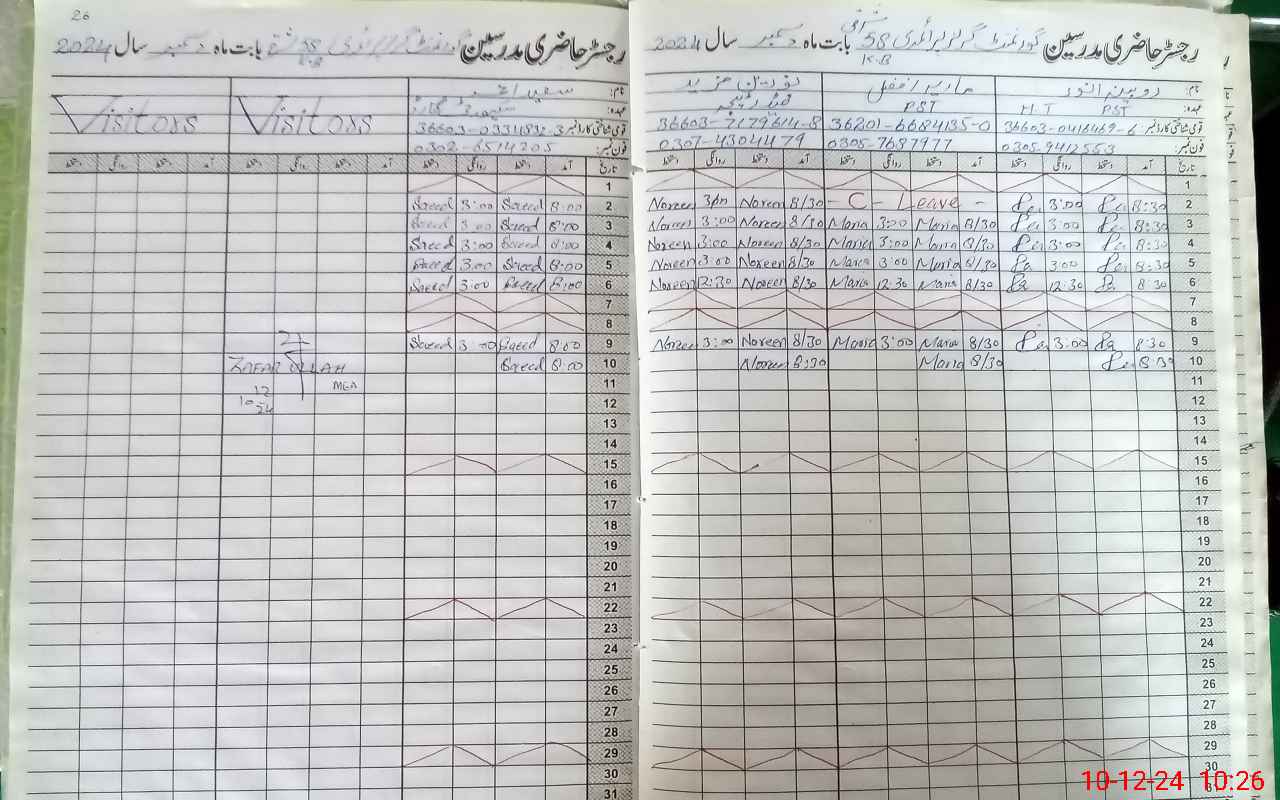 رجسٹر حاضری مدرسین گورنمنٹ گرلز پرائمری 58 شرقی بابت ماہ دسمبر سال 2024
K.B
نام: روبینہ انور ماریہ افضل نورین
عہدہ: PST H T PST
قومی شناختی کارڈ نمبر: 36603-0416469-6 36201-6684135-0 36603-7179614-8
فون نمبر: 0305-9412553 0305-7687977 0307-4304479
تاریخ آمد دستخط روانگی دستخط آمد دستخط روانگی دستخط آمد دستخط روانگی دستخط
1
Noreen 3pm Noreen 8/30 - C - Leave - 3:00 8:30 2
Noreen 3:00 Noreen 8/30 Maria 3:00 Maria 8/30 3:00 8:30 3
Noreen 3:00 Noreen 8/30 Maria 3:00 Maria 8/30 3:00 8:30 4
Noreen 3:00 Noreen 8/30 Maria 3:00 Maria 8/30 3:00 8:30 5
Noreen 12:30 Noreen 8/30 Maria 12:30 Maria 8/30 12:30 8:30 6
7
8
Noreen 3:00 Noreen 8/30 Maria 3:00 Maria 8/30 3:00 8:30 9
Noreen 8:30 Maria 8/30 8:30 10
11
12
13
14
15
16
17
18
19
20
21
22
23
24
25
26
27
28
29
30
31
26
رجسٹر حاضری مدرسین گورنمنٹ 58 بابت ماہ دسمبر سال 2024
K.B
نام: سعید احمد
عہدہ: سیکیورٹی گارڈ Visitors Visitors
قومی شناختی کارڈ نمبر: 36603-0331832-3
فون نمبر: 0302-6514205
تاریخ آمد دستخط روانگی دستخط آمد دستخط روانگی دستخط آمد دستخط روانگی دستخط
1
Saeed 3:00 Saeed 8:00 2
Saeed 3:00 Saeed 8:00 3
Saeed 3:00 Saeed 8:00 4
Saeed 3:00 Saeed 8:00 5
Saeed 3:00 Saeed 8:00 6
7
8
Saeed 3:00 Saeed 8:00 9
ZAFAR ULLAH Saeed 8:00 10
MEA 11
10 12 24 12
13
14
15
16
17
18
19
20
21
22
23
24
25
26
27
28
29
30
31
10-12-24 10:26